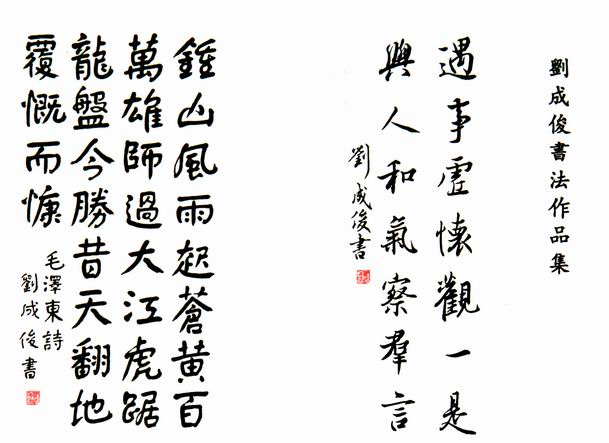 劉成俊書法作品集
遇事虛懷觀一是
與人和氣察羣言
劉成俊書
鍾山風雨起蒼黃百
萬雄師過大江虎踞
龍盤今勝昔天翻地
覆慨而慷
毛澤東詩
劉成俊書